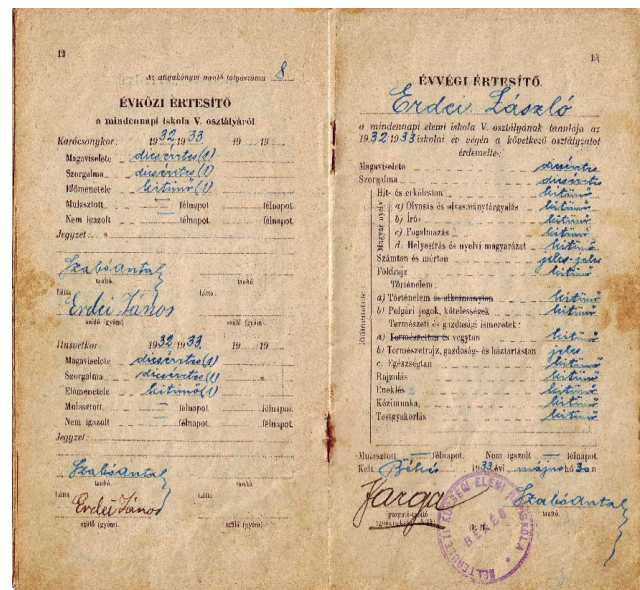 12
Az anyakönyvi napló folyószáma 8
ÉVKÖZI ÉRTESÍTŐ
a mindennapi iskola V. osztályáról.
Karácsonykor: 1932/1933. 19 19
Magaviselete dicséretes (1)
Szorgalma dicséretes (1)
Előmenetele kitünő (1)
Mulasztott — félnapot. félnapot.
Nem igazolt — félnapot. félnapot.
Jegyzet:
Szabó Antal
tanító. tanító.
Látta: Látta:
Erdei János
szülő (gyám). szülő (gyám).
Husvétkor: 1932/1933. 19 19
Magaviselete dicséretes (1)
Szorgalma dicséretes (1)
Előmenetele kitünő (1)
Mulasztott — félnapot. félnapot.
Nem igazolt — félnapot. félnapot.
Jegyzet:
Szabó Antal
tanító. tanító.
Látta:
Erdei János
szülő (gyám). szülő (gyám).
13
ÉVVÉGI ÉRTESÍTŐ.
Erdei László
a mindennapi elemi iskola V. osztályának tanulója az
1932/1933 iskolai év végén a következő osztályzatot
érdemelte:
Magaviselete dicséretes
Szorgalma dicséretes
Hit- és erkölcstan kitünő
Magyar nyelv
a) Olvasás és olvasmánytárgyalás kitünő
b) Írás kitünő
c) Fogalmazás kitünő
d) Helyesírás és nyelvi magyarázat kitünő
Számtan és mértan jeles-jeles
Földrajz kitünő
Történelem:
a) Történelem és alkotmánytan kitünő
b) Polgári jogok, kötelességek kitünő
Természeti és gazdasági ismeretek:
a) Természettan és vegytan kitünő
b) Természetrajz, gazdaság- és háztartástan jeles
c) Egészségtan kitünő
Rajzolás kitünő
Éneklés kitünő
Kézimunka kitünő
Testgyakorlás kitünő
Előmenetele:
Mulasztott — félnapot. Nem igazolt — félnapot.
Kelt Békés 1933 évi május hó 30-n
Varga
Szabó Antal
igazgató-tanító
tanító.
BELTERÜLETI KÖZSÉGI ELEMI NÉPISKOLA
BÉKÉS